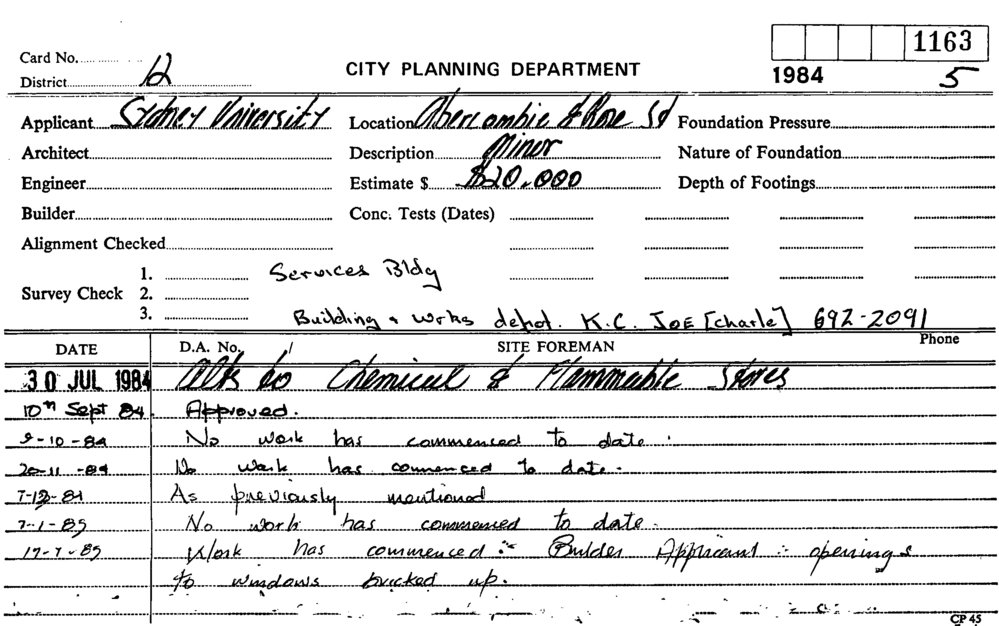 1163
Card No.
District 12
CITY PLANNING DEPARTMENT
1984
5
Applicant Sydney University
Location Abercrombie & Rose St
Foundation Pressure
Architect
Description Minor
Nature of Foundation
Engineer
Estimate $ $20,000
Depth of Footings
Builder
Conc. Tests (Dates)
Alignment Checked
Survey Check 1.
2.
3.
Services Bldg
Building & Works depot. K.C. JOE [Charle] 692-2091
Phone
DATE D.A. No. / SITE FOREMAN
30 JUL 1984 Alts to Chemical & Flammable Stores
10th Sept 84. Approved.
9-10-84 No work has commenced to date.
20-11-84 No work has commenced to date.
7-12-84 As previously mentioned
7-1-85 No work has commenced to date.
17-7-85 Work has commenced :- Builder Applicant :- openings
to windows bricked up.
CP 45